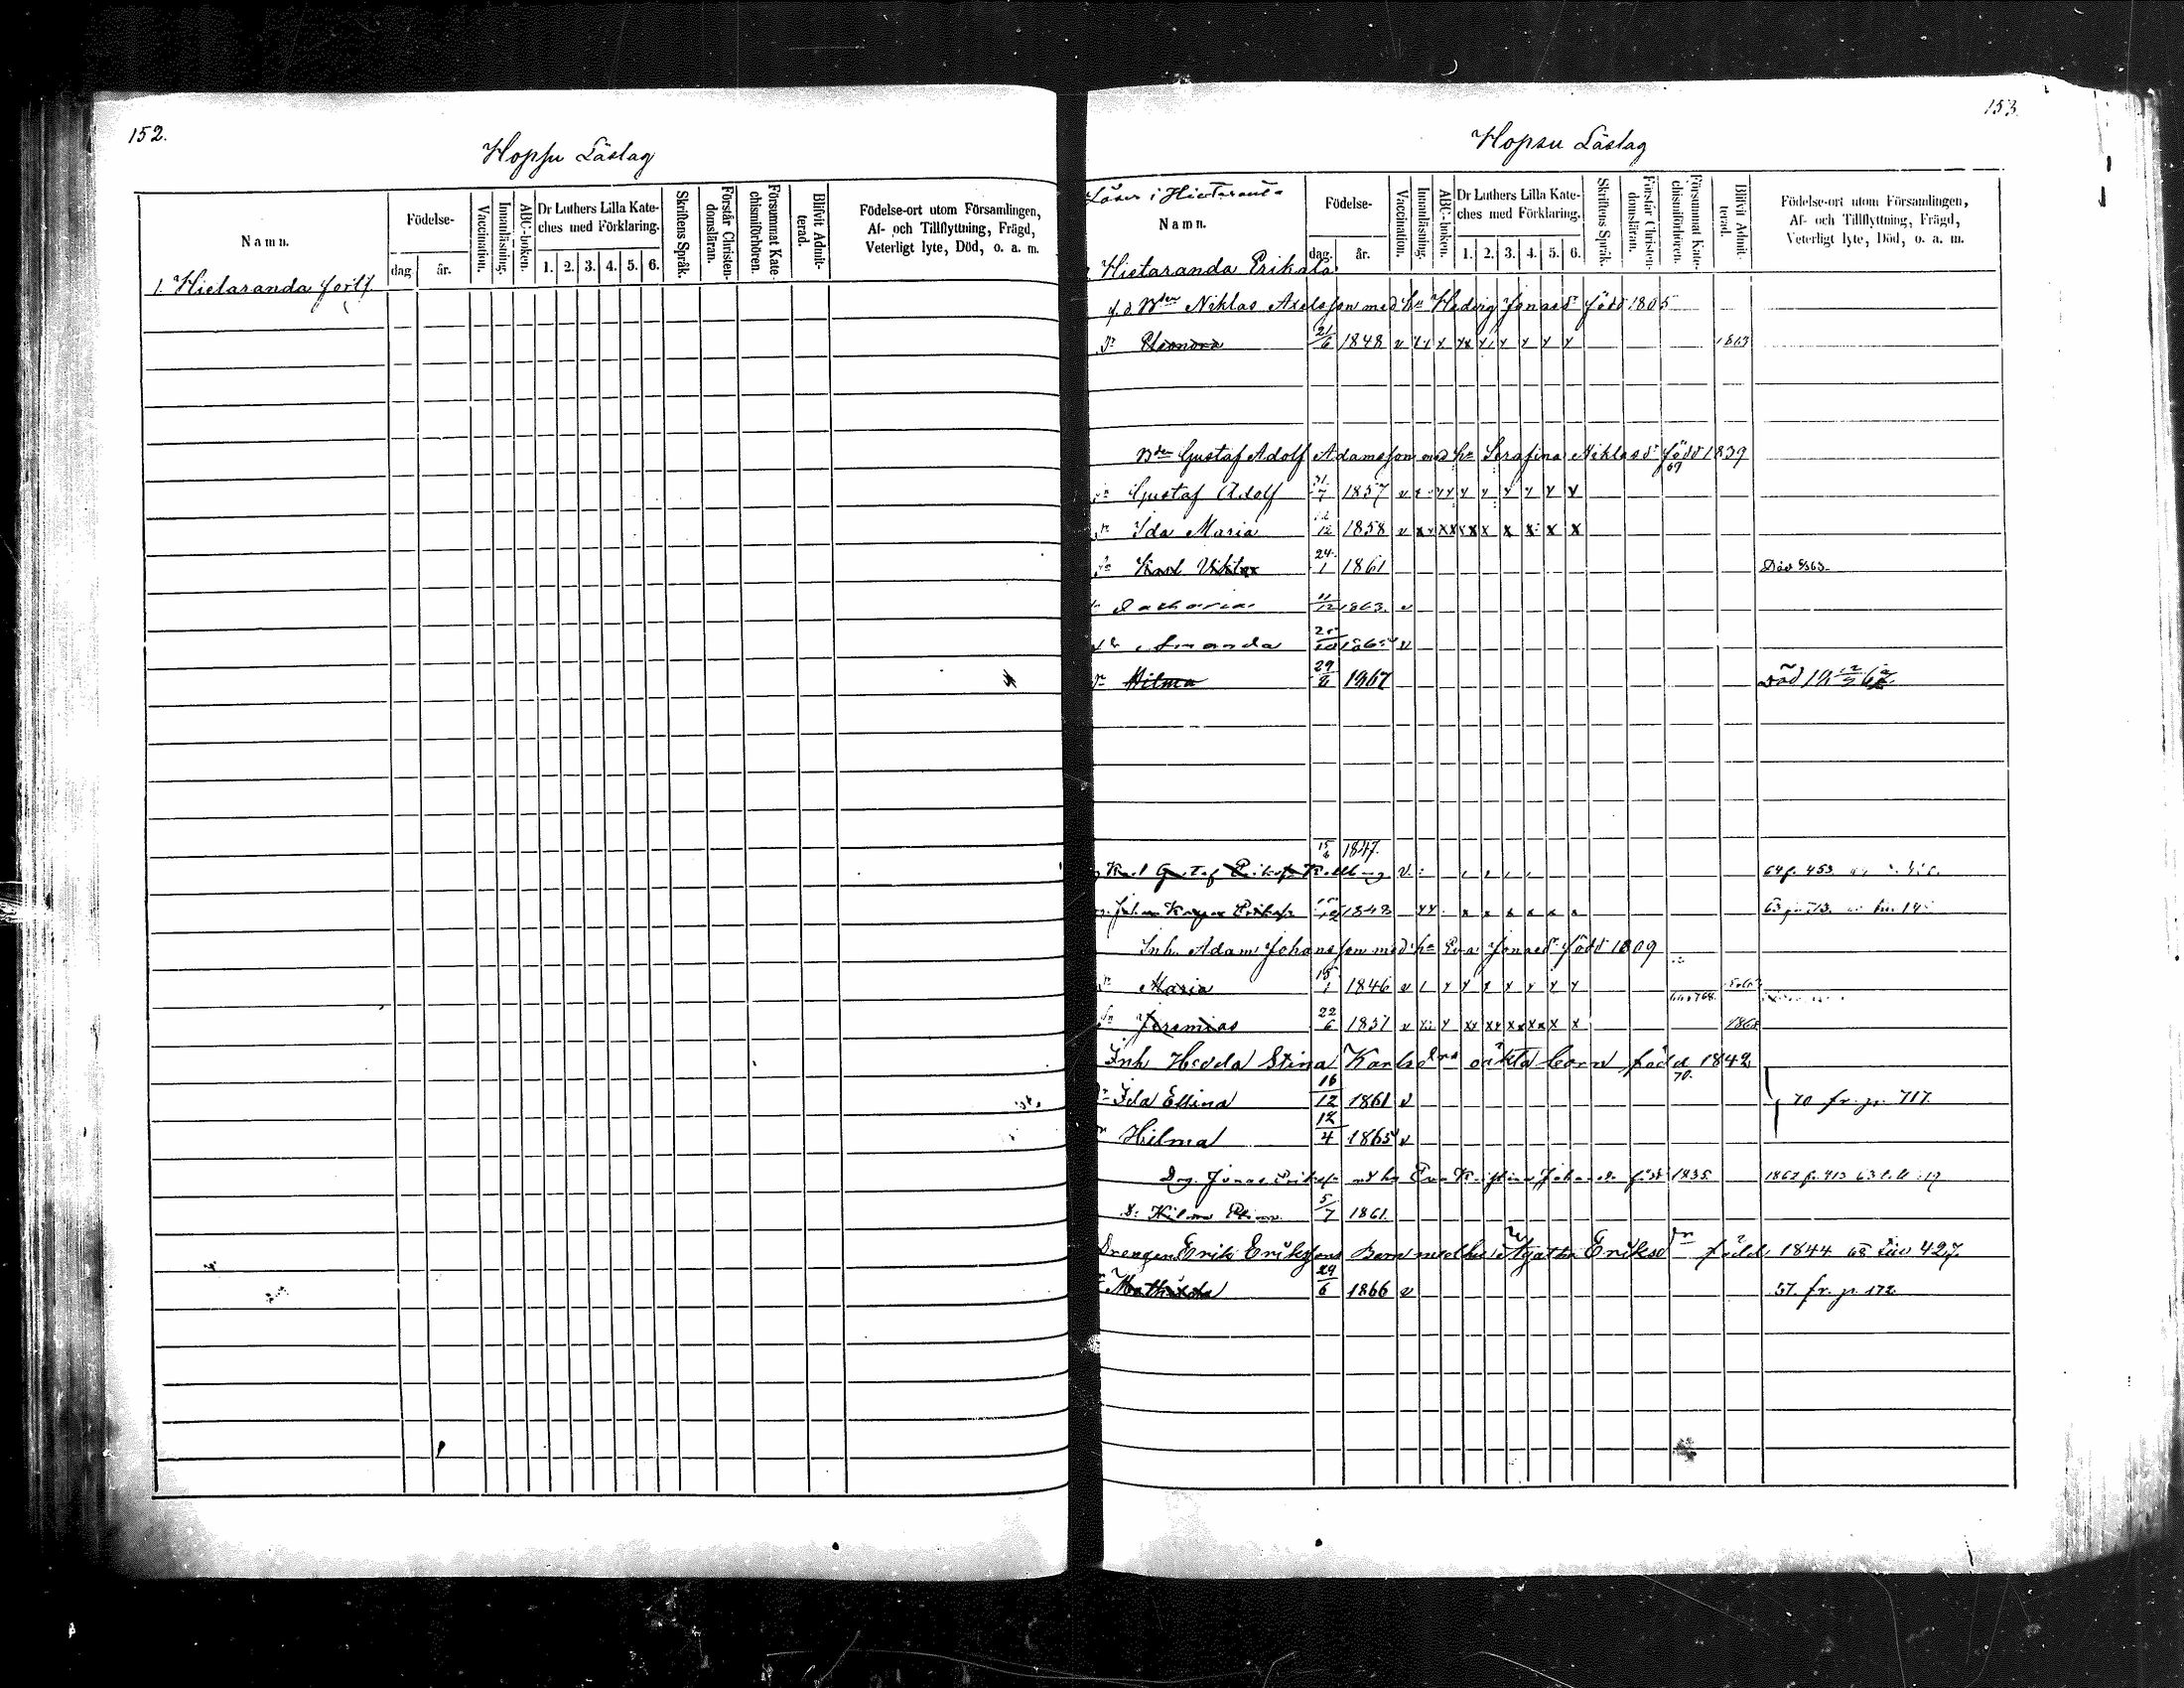 152.
Hopsu Läslag
Namn.
Födelse-
dag
år.
Vaccination.
Innanläsning.
ABC-boken.
Dr Luthers Lilla Kateches med Förklaring.
1. 2. 3. 4. 5. 6.
Skriftens Språk.
Förstår Christendomsläran.
Försummat Katechismiförhören.
Blifvit Admitterad.
Födelse-ort utom Församlingen,
Af- och Tillflyttning, Frägd,
Veterligt lyte, Död, o. a. m.
1. Hietaranda forts.
153.
Hopsu Läslag
Läser i
Namn.
Födelse-
dag.
år.
Vaccination.
Innanläsning.
ABC-boken.
Dr Luthers Lilla Kateches med Förklaring.
1. 2. 3. 4. 5. 6.
Skriftens Språk.
Förstår Christendomsläran.
Försummat Katechismiförhören.
Blifvit Admitterad.
Födelse-ort utom Församlingen,
Af- och Tillflyttning, Frägd,
Veterligt lyte, Död, o. a. m.
Hietaranda Erikala
f. d. Bden Niklas Axelsson med h= Hedvig Jonasdr född 1805
Dr Eleonora 21/6 1848 v 1863
Bden Gustaf Adolf Adamsson med h= Serafina Niklasdr född 1839
69
Sn Gustaf Adolf 31/7 1857 v
Dr Ida Maria 12 1858 v
Sn Karl Viktor 24/1 1861 Död 1863.
Zacharias 11/12 1863. v
Dr Amanda 1865 v
Dr Hilma 29/8 1867 Död
15/6 1847.
Karl Gustaf Eriksson v 64 p. 453.
Johan Eriksson
Inh. Adam Johansson med h= Eva Jonasdr född 1809
Dr Maria 15/1 1846 v
Sn Jeremias 22/6 1851 v 1868
Inh Hedda Stina Karlsdrs oäkta barn född 1842
70.
Dr Ida Ellina 16/12 1861 v 70 fr. p. 717.
Dr Hilma 12/4 1865 v
Drg. Jonas Eriksson med h= Eva Kristina född 1835.
Dr Hilma 5/7 1861.
Drengen Erik Erikssons Barn med hu Agatha Eriksdr född 1844 68 427
Dr Mathilda 29/6 1866 v 57. fr. p. 172